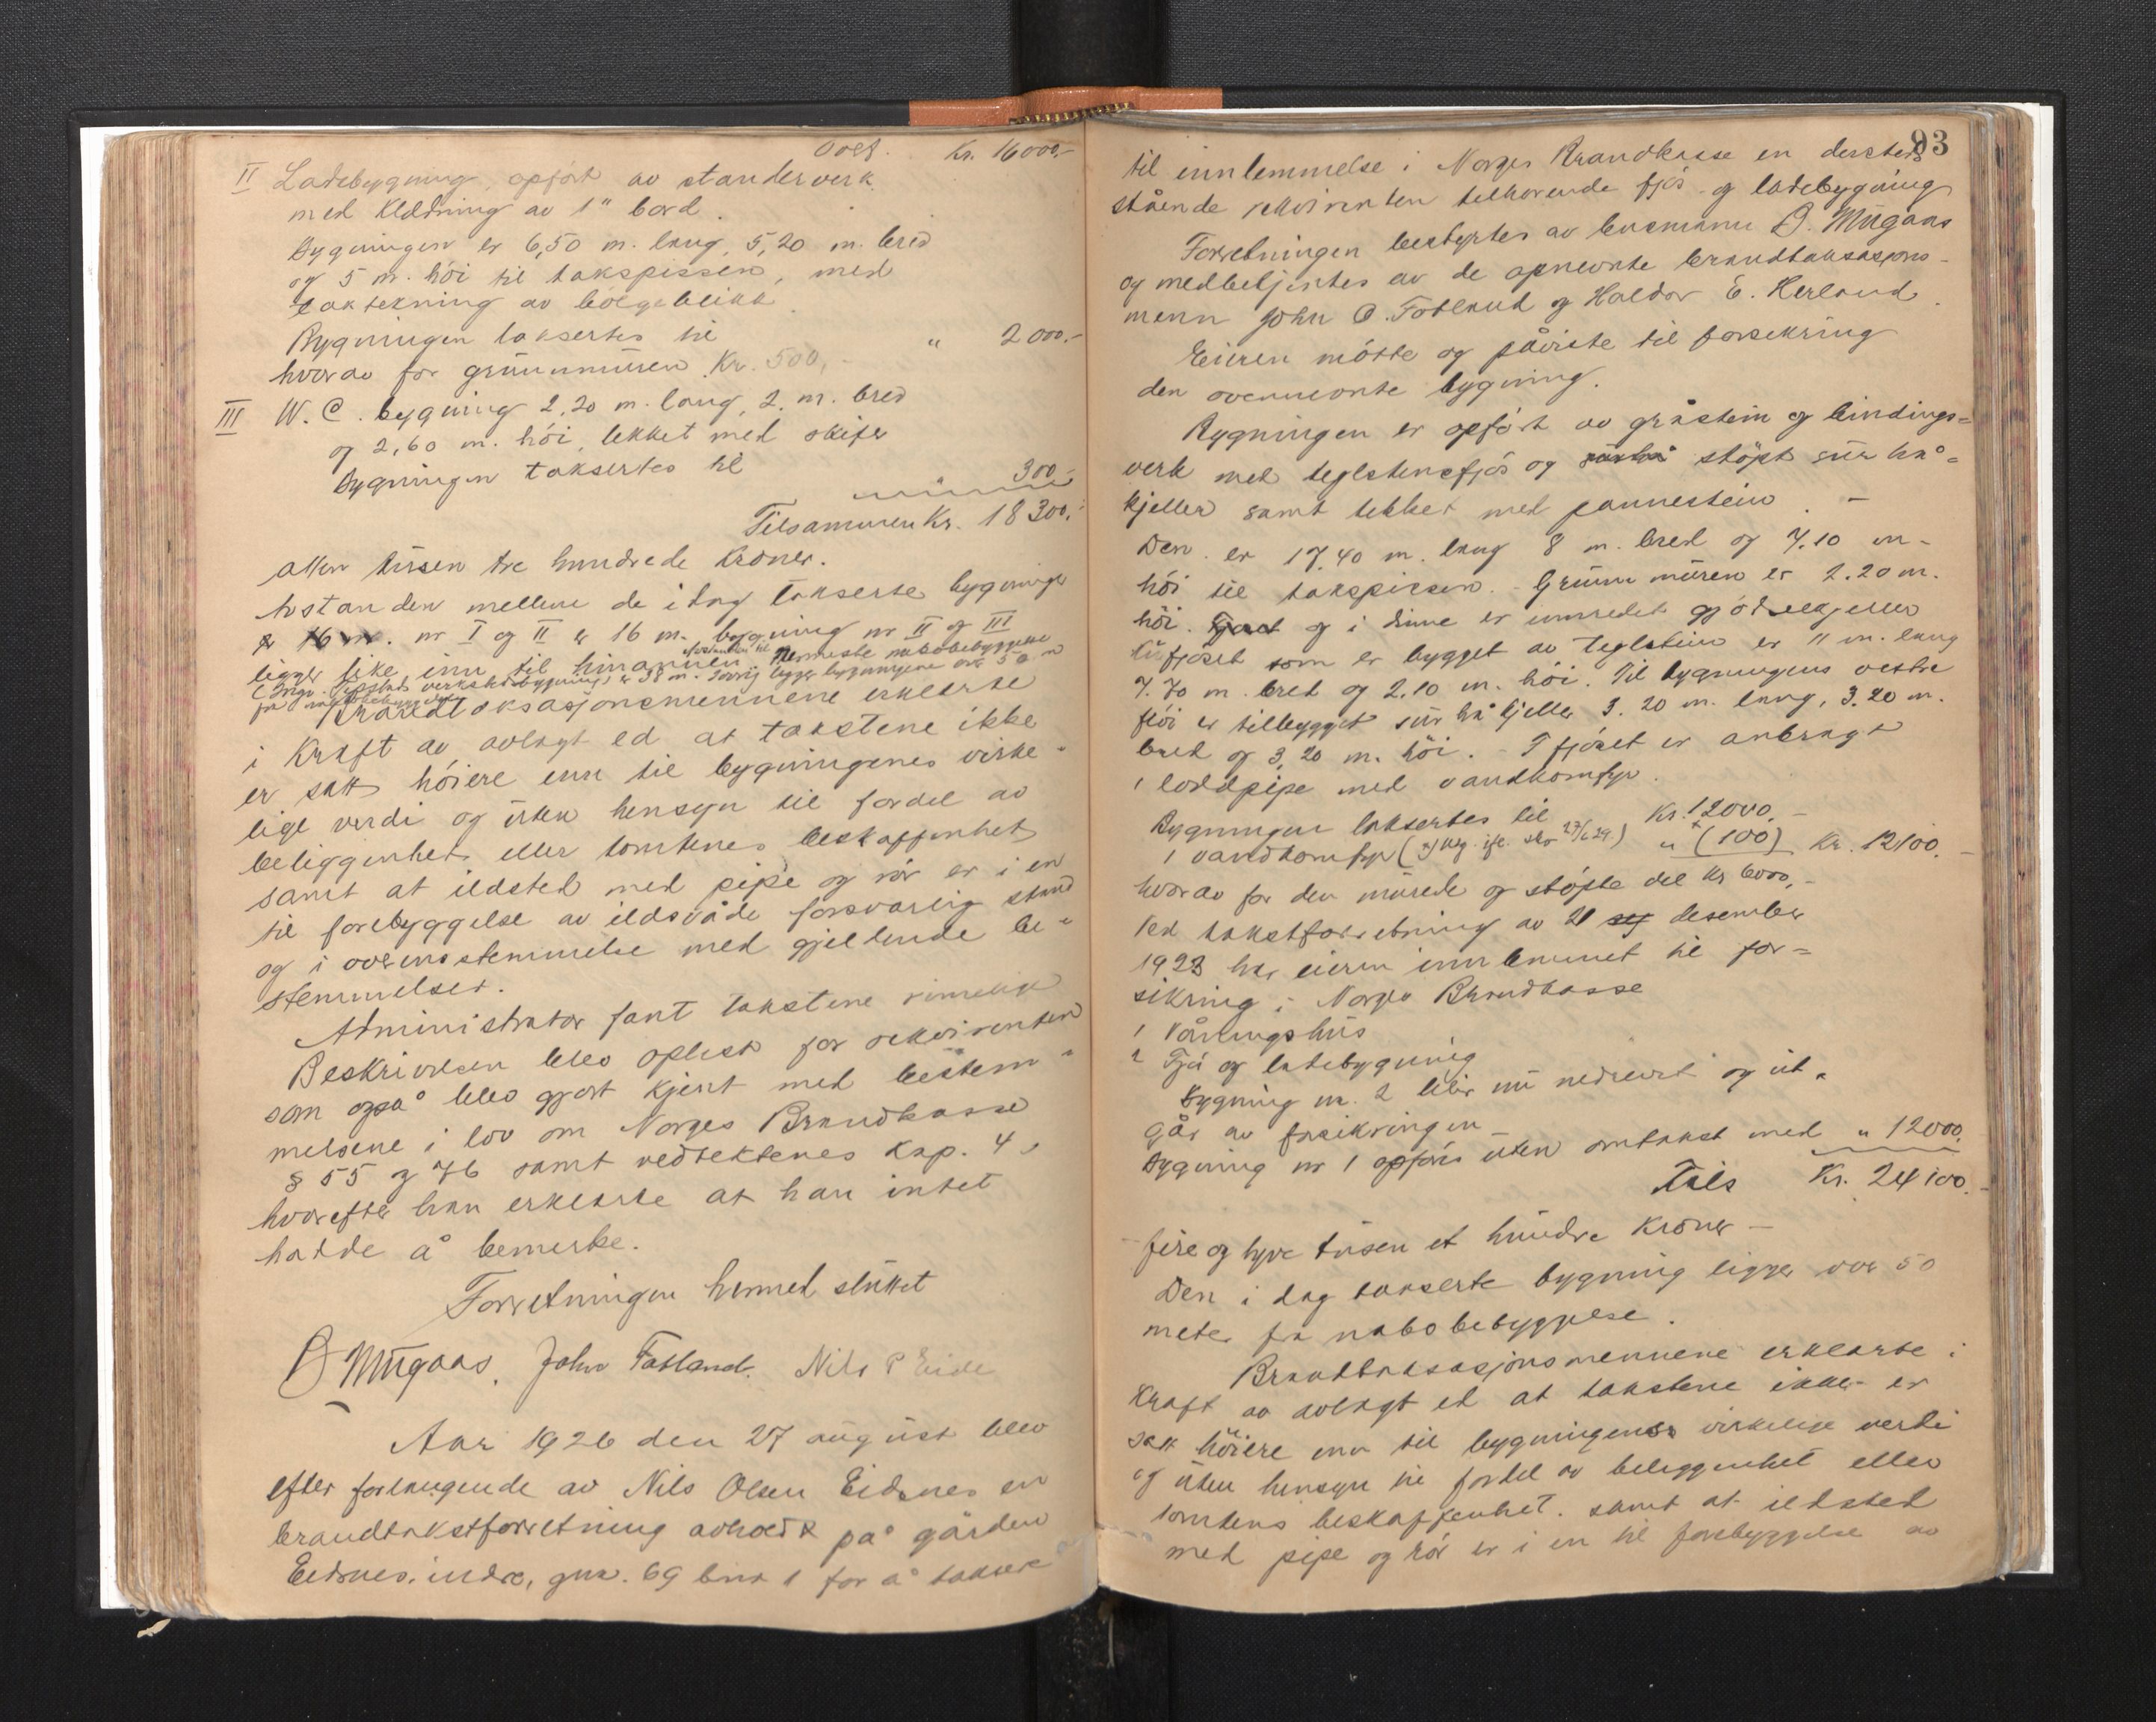 Overf. Kr. 16000,-
II Ladebygning, opført av standerverk
med klædning av 1" bord.
Bygningen er 6,50 m. lang, 5,20 m. bred
og 5 m. høi til takspissen, med
taktekning av bølgeblikk
Bygningen taksertes til " 2000.-
hvorav for grunnmuren Kr. 500,-
III W.C. bygning 2,20 m. lang, 2. m. bred
og 2,60 m. høi, tekket med skifer
Bygningen taksertes til 300,-
Tilsammen Kr. 18300,-
atten tusen tre hundrede kroner.
Avstanden mellem de idag takserte bygninger
nr I og II er 16 m. bygning nr II og III
ligger like inn til hinannen. Avstanden til nermeste nabobebyggelse
verkstedbygning er 38 m. forøvrig ligger bygningene over 50 m
fra nabobebyggelse
Brandtaksasjonsmennene erklærte
i kraft av avlagt ed at takstene ikke
er satt høiere enn til bygningenes virke-
lige verdi og uten hensyn til fordel av
beliggenhet eller tomtenes beskaffenhet
samt at ildsted med pipe og rør er i en
til forebyggelse av ildsvåde forsvarlig stand
og i overensstemmelse med gjeldende be-
stemmelser.
Administrator fant takstene rimelige
Beskrivelsen blev oplest for rekvirenten
som også blev gjort kjent med bestem-
melsene i lov om Norges Brandkasse
§ 55 og 76 samt vedtektenes kap. 4,
hvorefter han erklærte at han intet
hadde å bemerke.
Forretningen hermed sluttet
O Mugaas. John Fatland. Nils P Eide
Aar 1926 den 27 august blev
efter forlangende av Nils Olsen Eidsnes en
brandtakstforretning avholdt på gården
Eidsnes indre, gnr. 69 bnr 1 for å taksere
93
til innlemmelse i Norges Brandkasse en dersteds
stående rekvirenten tilhørende fjøs og ladebygning
Forretningen bestyrtes av lensmann O. Mugaas
og medbetjentes av de opnevnte brandtaksasjons-
menn John O. Fatland og Haldor E. Herland.
Eieren møtte og påviste til forsikring
den ovennevnte bygning.
Bygningen er opført av gråstein og bindings-
verk med teglstensfjøs og støpt surhå-
kjeller samt tekket med pannestein. -
Den er 17.40 m. lang 8 m. bred og 7.10 m-
høi til takspissen. - Grunnmuren er 2.20 m.
høi. og i dinne er innredet gjødselkjeller
fjøset som er bygget av teglstein er 11 m. lang
7.70 m. bred og 2.10 m. høi. Til bygningens vestre
fløi er tilbygget surhåkjeller 3.20 m. lang, 3.20 m.
bred og 3,20 m. høi. - I fjøset er anbragt
1 loddpipe med vandkomfyr.
Bygningen taksertes til Kr. 12000.-
1 vandkomfyr " (100) Kr. 12100.-
hvorav for den murede og støpte del Kr 6000,-
Ved takstforretning av 21 desember
1923 har eieren innlemmet til for-
sikring i Norges Brandkasse
1 Våningshus
2 Fjøs og ladebygning
Bygning nr. 2 blir nu nedrevet og ut-
går av forsikringen -
Bygning nr 1 opføres uten omtakst med " 12000.
Tils Kr. 24100.-
- fire og tyve tusen et hundre kroner -
Den i dag takserte bygning ligger over 50
meter fra nabobebyggelse.
Brandtaksasjonsmennene erklærte i
kraft av avlagt ed at takstene ikke er
satt høiere enn til bygningenes virkelige verdi
og uten hensyn til fordel av beliggenhet eller
tomtens beskaffenhet. samt at ildsted
med pipe og rør er i en til forebyggelse av